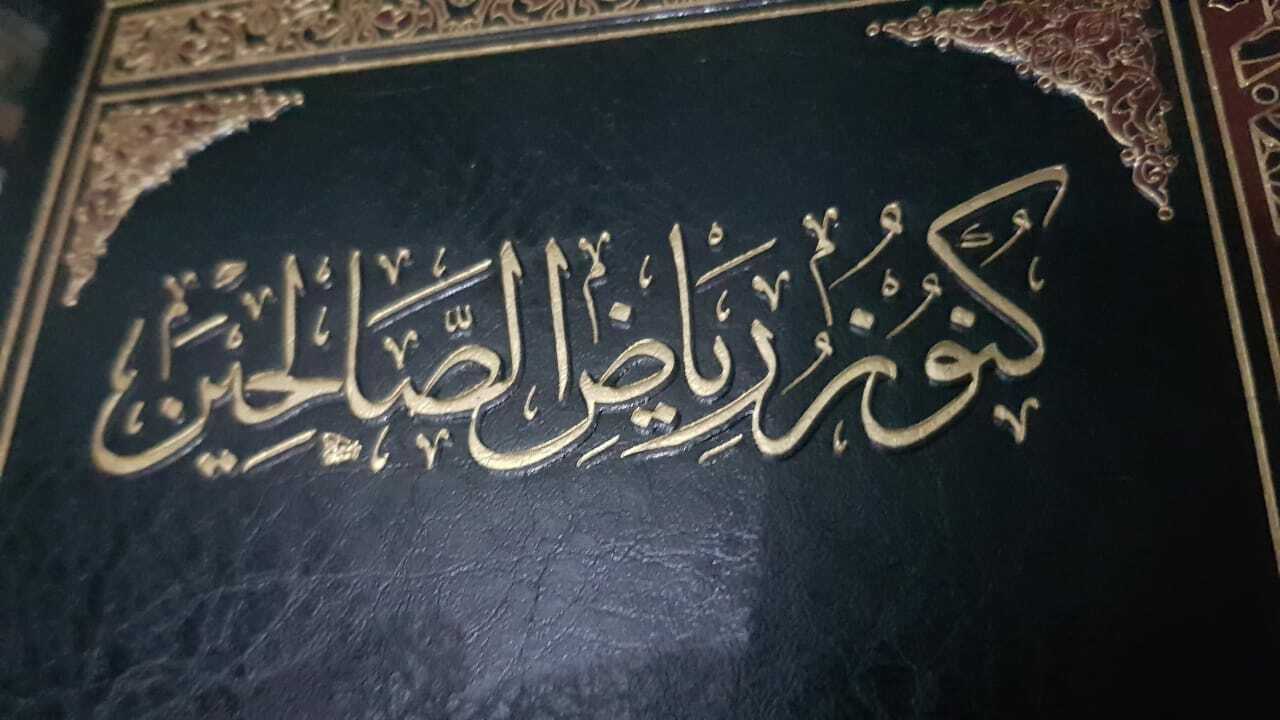 كُنُوزُ رِيَاضِ الصَّالِحِينَ